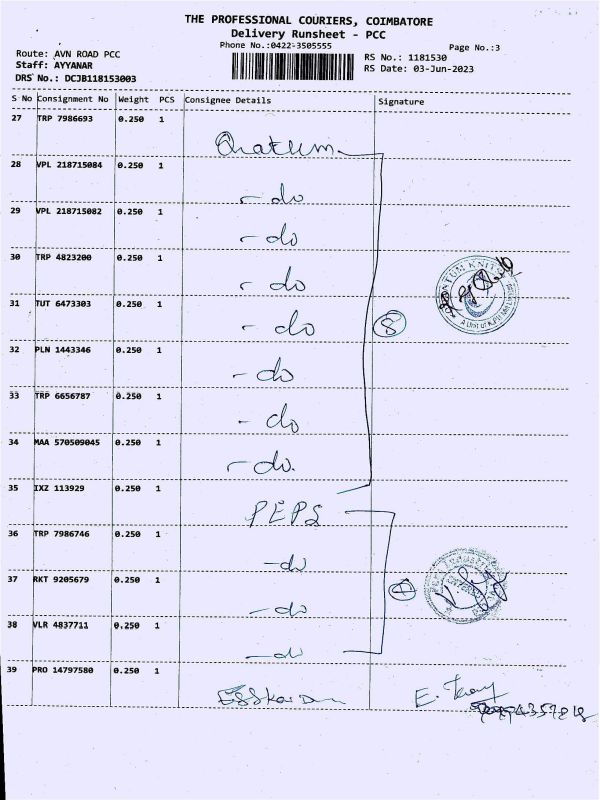 THE PROFESSIONAL COURIERS, COIMBATORE
Delivery Runsheet - PCC
Phone No.:0422-3505555
Page No.:3
Route: AVN ROAD PCC
Staff: AYYANAR
DRS No.: DCJB118153003
RS No.: 1181530
RS Date: 03-Jun-2023
S No Consignment No Weight PCS Consignee Details Signature
27 TRP 7986693 0.250 1
Quatum
28 VPL 218715084 0.250 1
- do
29 VPL 218715082 0.250 1
- do
30 TRP 4823200 0.250 1
- do
31 TUT 6473303 0.250 1
- do
8
32 PLN 1443346 0.250 1
- do
33 TRP 6656787 0.250 1
- do
34 MAA 570509045 0.250 1
- do.
35 IXZ 113929 0.250 1
PEPS
36 TRP 7986746 0.250 1
- do
37 RKT 9205679 0.250 1
- do
38 VLR 4837711 0.250 1
- do
39 PRO 14797580 0.250 1